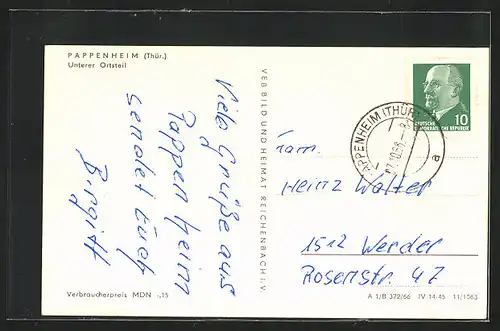 PAPPENHEIM (Thür.)
Unterer Ortsteil
Viele Grüße aus
Pappenheim
sendet Euch
Birgitt
Verbraucherpreis MDN -,15
VEB BILD UND HEIMAT REICHENBACH i. V.
10
DEUTSCHE
DEMOKRATISCHE REPUBLIK
PAPPENHEIM (THÜR
a
Fam.
Heinz Walter
1512 Werder
Rosenstr. 47
A 1/B 372/66 IV-14-45 11/1563